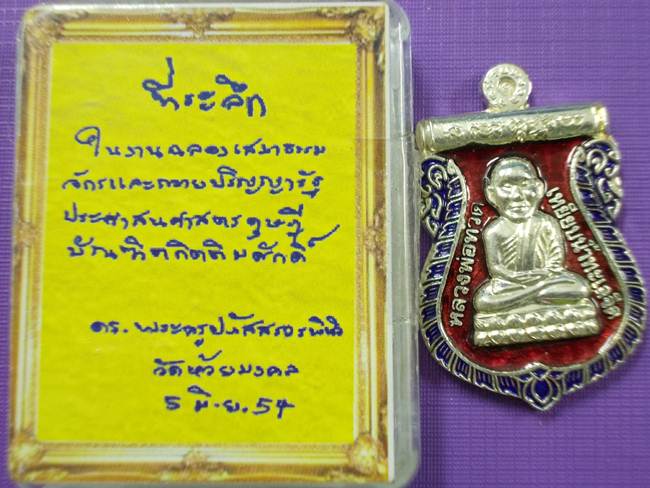 ที่ระลึก
ในงานฉลองเสมาธรรม
จักรและถวายปริญญารัฐ
ประศาสนศาสตรดุษฎี
บัณฑิตกิตติมศักดิ์
ดร. พระครูปภัสสรวรพินิจ
วัดห้วยมงคล
5 มิ.ย. 54
หลวงพ่อทวด
เหยียบน้ำทะเลจืด